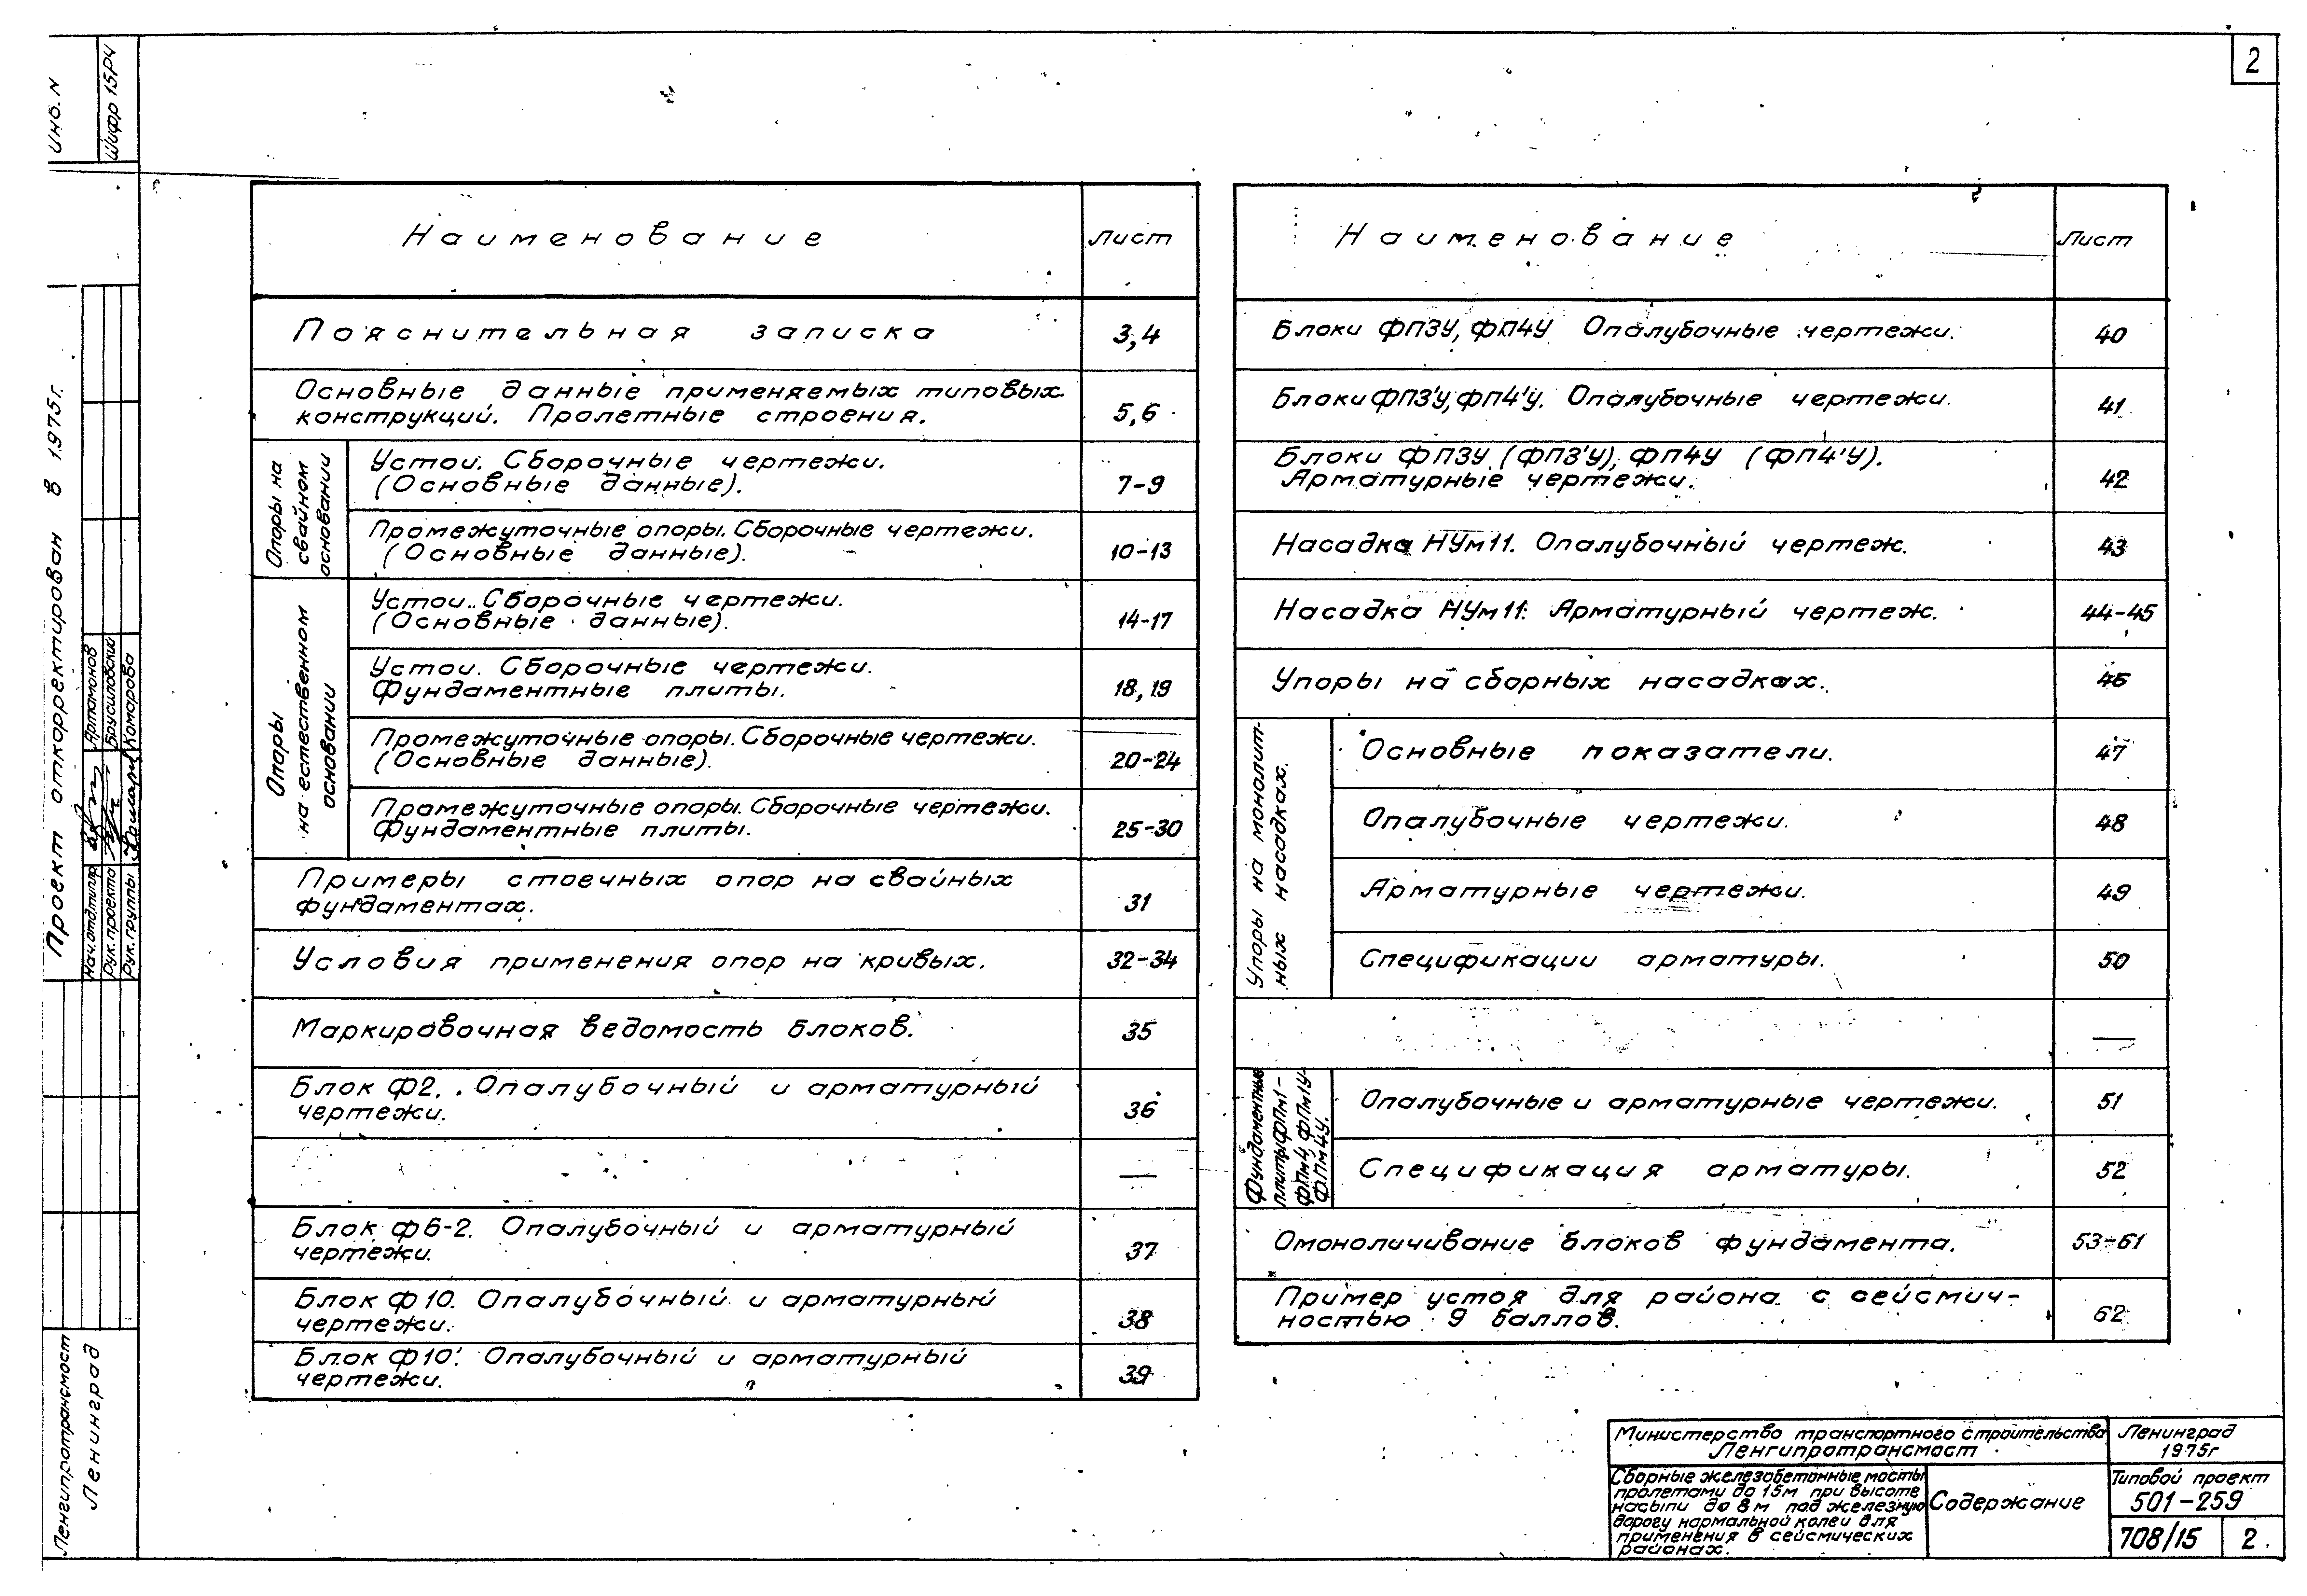 2
Инв. N
Шифр 15РЧ
Проект откорректирован в 1975г.
Нач.отдтипр Артамонов
Рук.проекта Брусиловский
Рук.группы Комарова
Ленгипротрансмост
Ленинград
Наименование Лист
Пояснительная записка 3,4
Основные данные применяемых типовых
конструкций. Пролетные строения. 5,6
Опоры на
свайном
основании
Устои. Сборочные чертежи.
(Основные данные). 7-9
Промежуточные опоры. Сборочные чертежи.
(Основные данные). 10-13
Опоры
на естественном
основании
Устои. Сборочные чертежи.
(Основные данные). 14-17
Устои. Сборочные чертежи.
Фундаментные плиты. 18,19
Промежуточные опоры. Сборочные чертежи.
(Основные данные). 20-24
Промежуточные опоры. Сборочные чертежи.
Фундаментные плиты. 25-30
Примеры стоечных опор на свайных
фундаментах. 31
Условия применения опор на кривых. 32-34
Маркировочная ведомость блоков. 35
Блок Ф2. Опалубочный и арматурный
чертежи. 36
—
Блок Ф6-2. Опалубочный и арматурный
чертежи. 37
Блок Ф10. Опалубочный и арматурный
чертежи. 38
Блок Ф10'. Опалубочный и арматурный
чертежи. 39
Наименование Лист
Блоки ФП3У, ФП4У Опалубочные чертежи. 40
Блоки ФП3'У, ФП4'У. Опалубочные чертежи. 41
Блоки ФП3У (ФП3'У), ФП4У (ФП4'У).
Арматурные чертежи. 42
Насадка НУм11. Опалубочный чертеж. 43
Насадка НУм11. Арматурный чертеж. 44-45
Упоры на сборных насадках. 46
Упоры на монолит-
ных насадках.
Основные показатели. 47
Опалубочные чертежи. 48
Арматурные чертежи. 49
Спецификации арматуры. 50
—
Фундаментные
плиты ФПм1-
ФПм4, ФПм1У-
ФПм4У.
Опалубочные и арматурные чертежи. 51
Спецификация арматуры. 52
Омоноличивание блоков фундамента. 53-61
Пример устоя для района с сейсмич-
ностью 9 баллов. 62
Министерство транспортного строительства
Ленгипротрансмост
Ленинград
1975г
Сборные железобетонные мосты
пролетами до 15м при высоте
насыпи до 8м под железную
дорогу нормальной колеи для
применения в сейсмических
районах.
Содержание
Типовой проект
501-259
708/15 2.